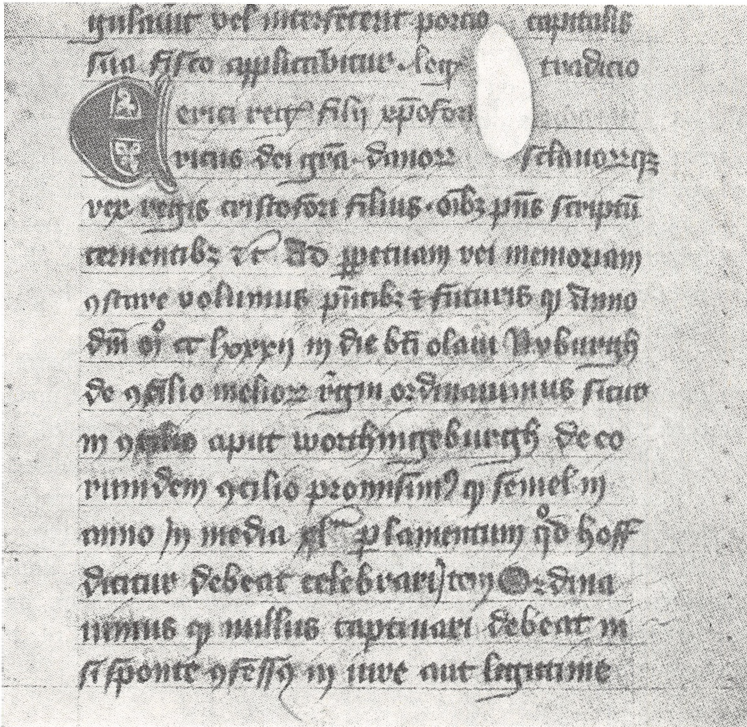 vel interfererit portio capitalis
sua fisco applicabitur. tradicio
erici filij xp̄ofori
Ericus dei gr̄a. danorꝝ sclauorꝝqꝫ
rex regis cristofori filius. oībꝫ pn̄s scriptū
cernentibꝫ ⁊c̄ Ad ꝑpetuam rei memoriam
ꝯstare volumus pn̄tibꝫ ⁊ futuris ꝙ Anno
dn̄i mͦ cc lxxxij in die bt̄i olaui Nyburgh
de ꝯsilio meliorꝝ r̄gni ordinauimus sicut
in ꝯcilio aput worthingeburgh de eo
rumdem ꝯcilio promisimꝰ ꝙ semel in
anno in media xlᵐᵃ ꝑlamentum qͦd hoff
dicitur debeat celebrari Item Ordina
uimus ꝙ nullus captiuari debeat ni
si sponte ꝯfessꝰ in iure aut legitime